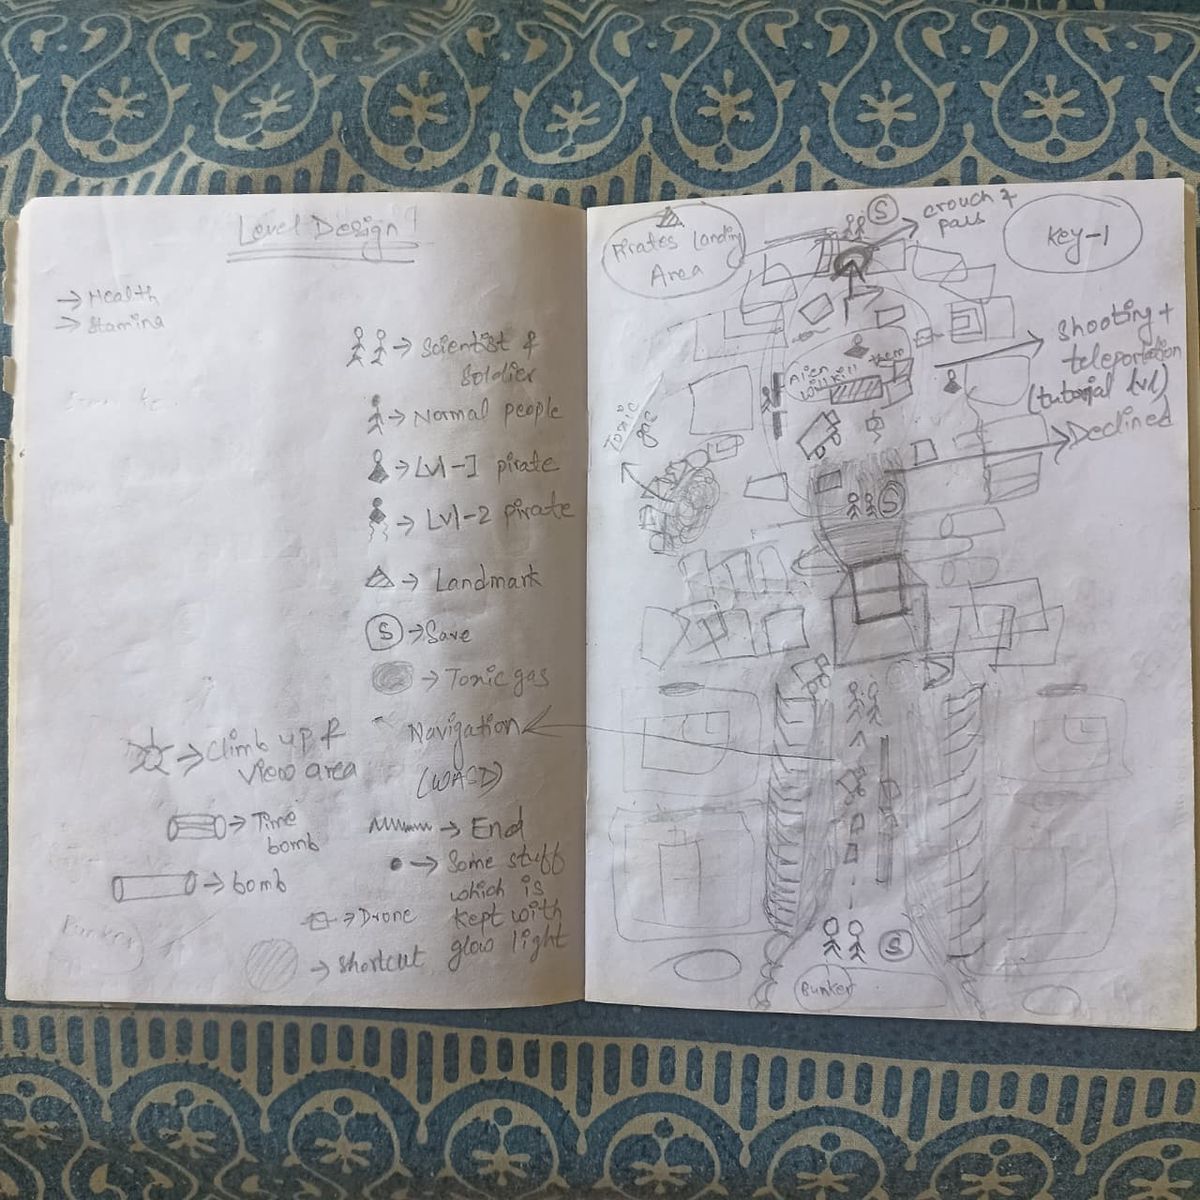 Level Design
→ Health
→ Stamina
→ Scientist &
Soldier
→ Normal people
→ Lvl-1 pirate
→ Lvl-2 pirate
→ Landmark
S → Save
→ Toxic gas
Navigation
(WASD)
→ climb up &
view area
→ Time
bomb
→ End
→ bomb
→ Some stuff
which is
kept with
glow light
→ Drone
→ shortcut
Bunker
Pirates landing
Area
S
crouch &
pass
Key-1
Shooting +
teleportation
(tutorial lvl)
Alien
will kill
them
Toxic
gas
Declined
S
S
Bunker